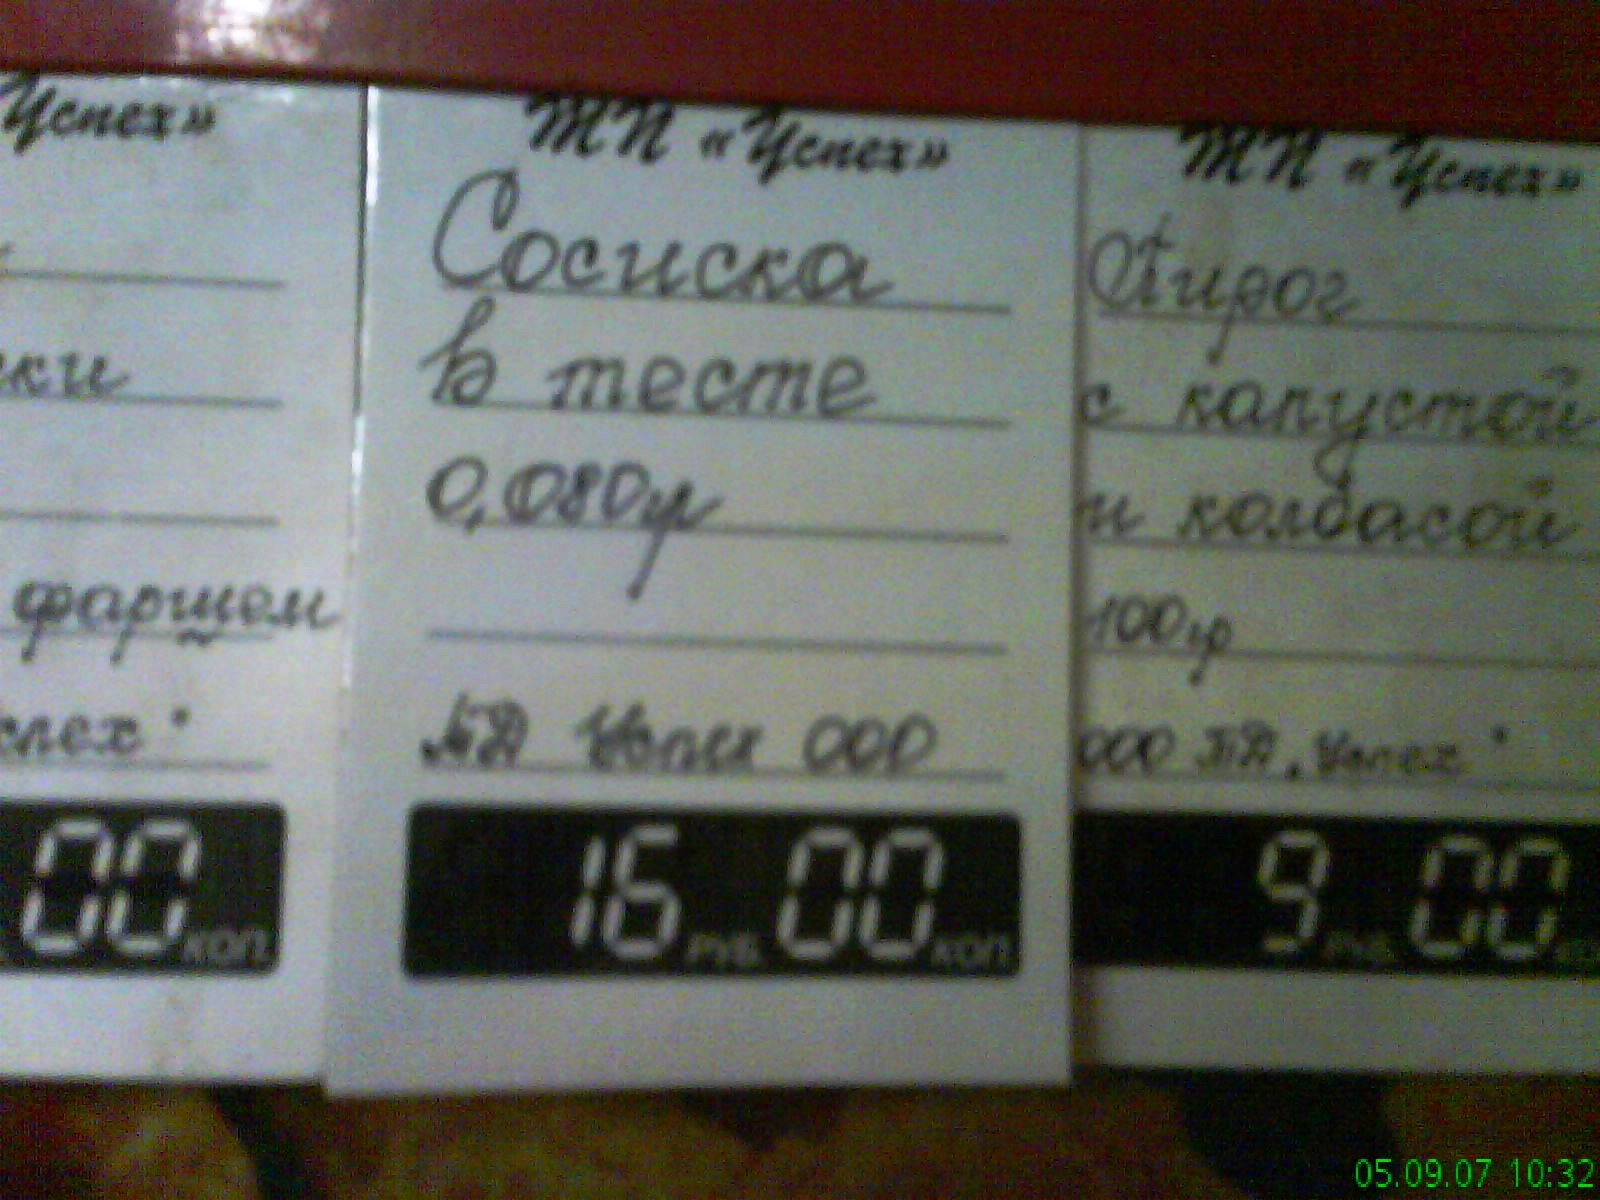 Успех»
ски
фаршем
спех"
00 коп.
ТП «Успех»
Сосиска
в тесте
0,080гр
ТД Успех ООО
16 руб. 00 коп.
ТП «Успех»
Пирог
с капустой
и колбасой
100гр
ООО ТД „Успех"
9 руб. 00 коп
05.09.07 10:32